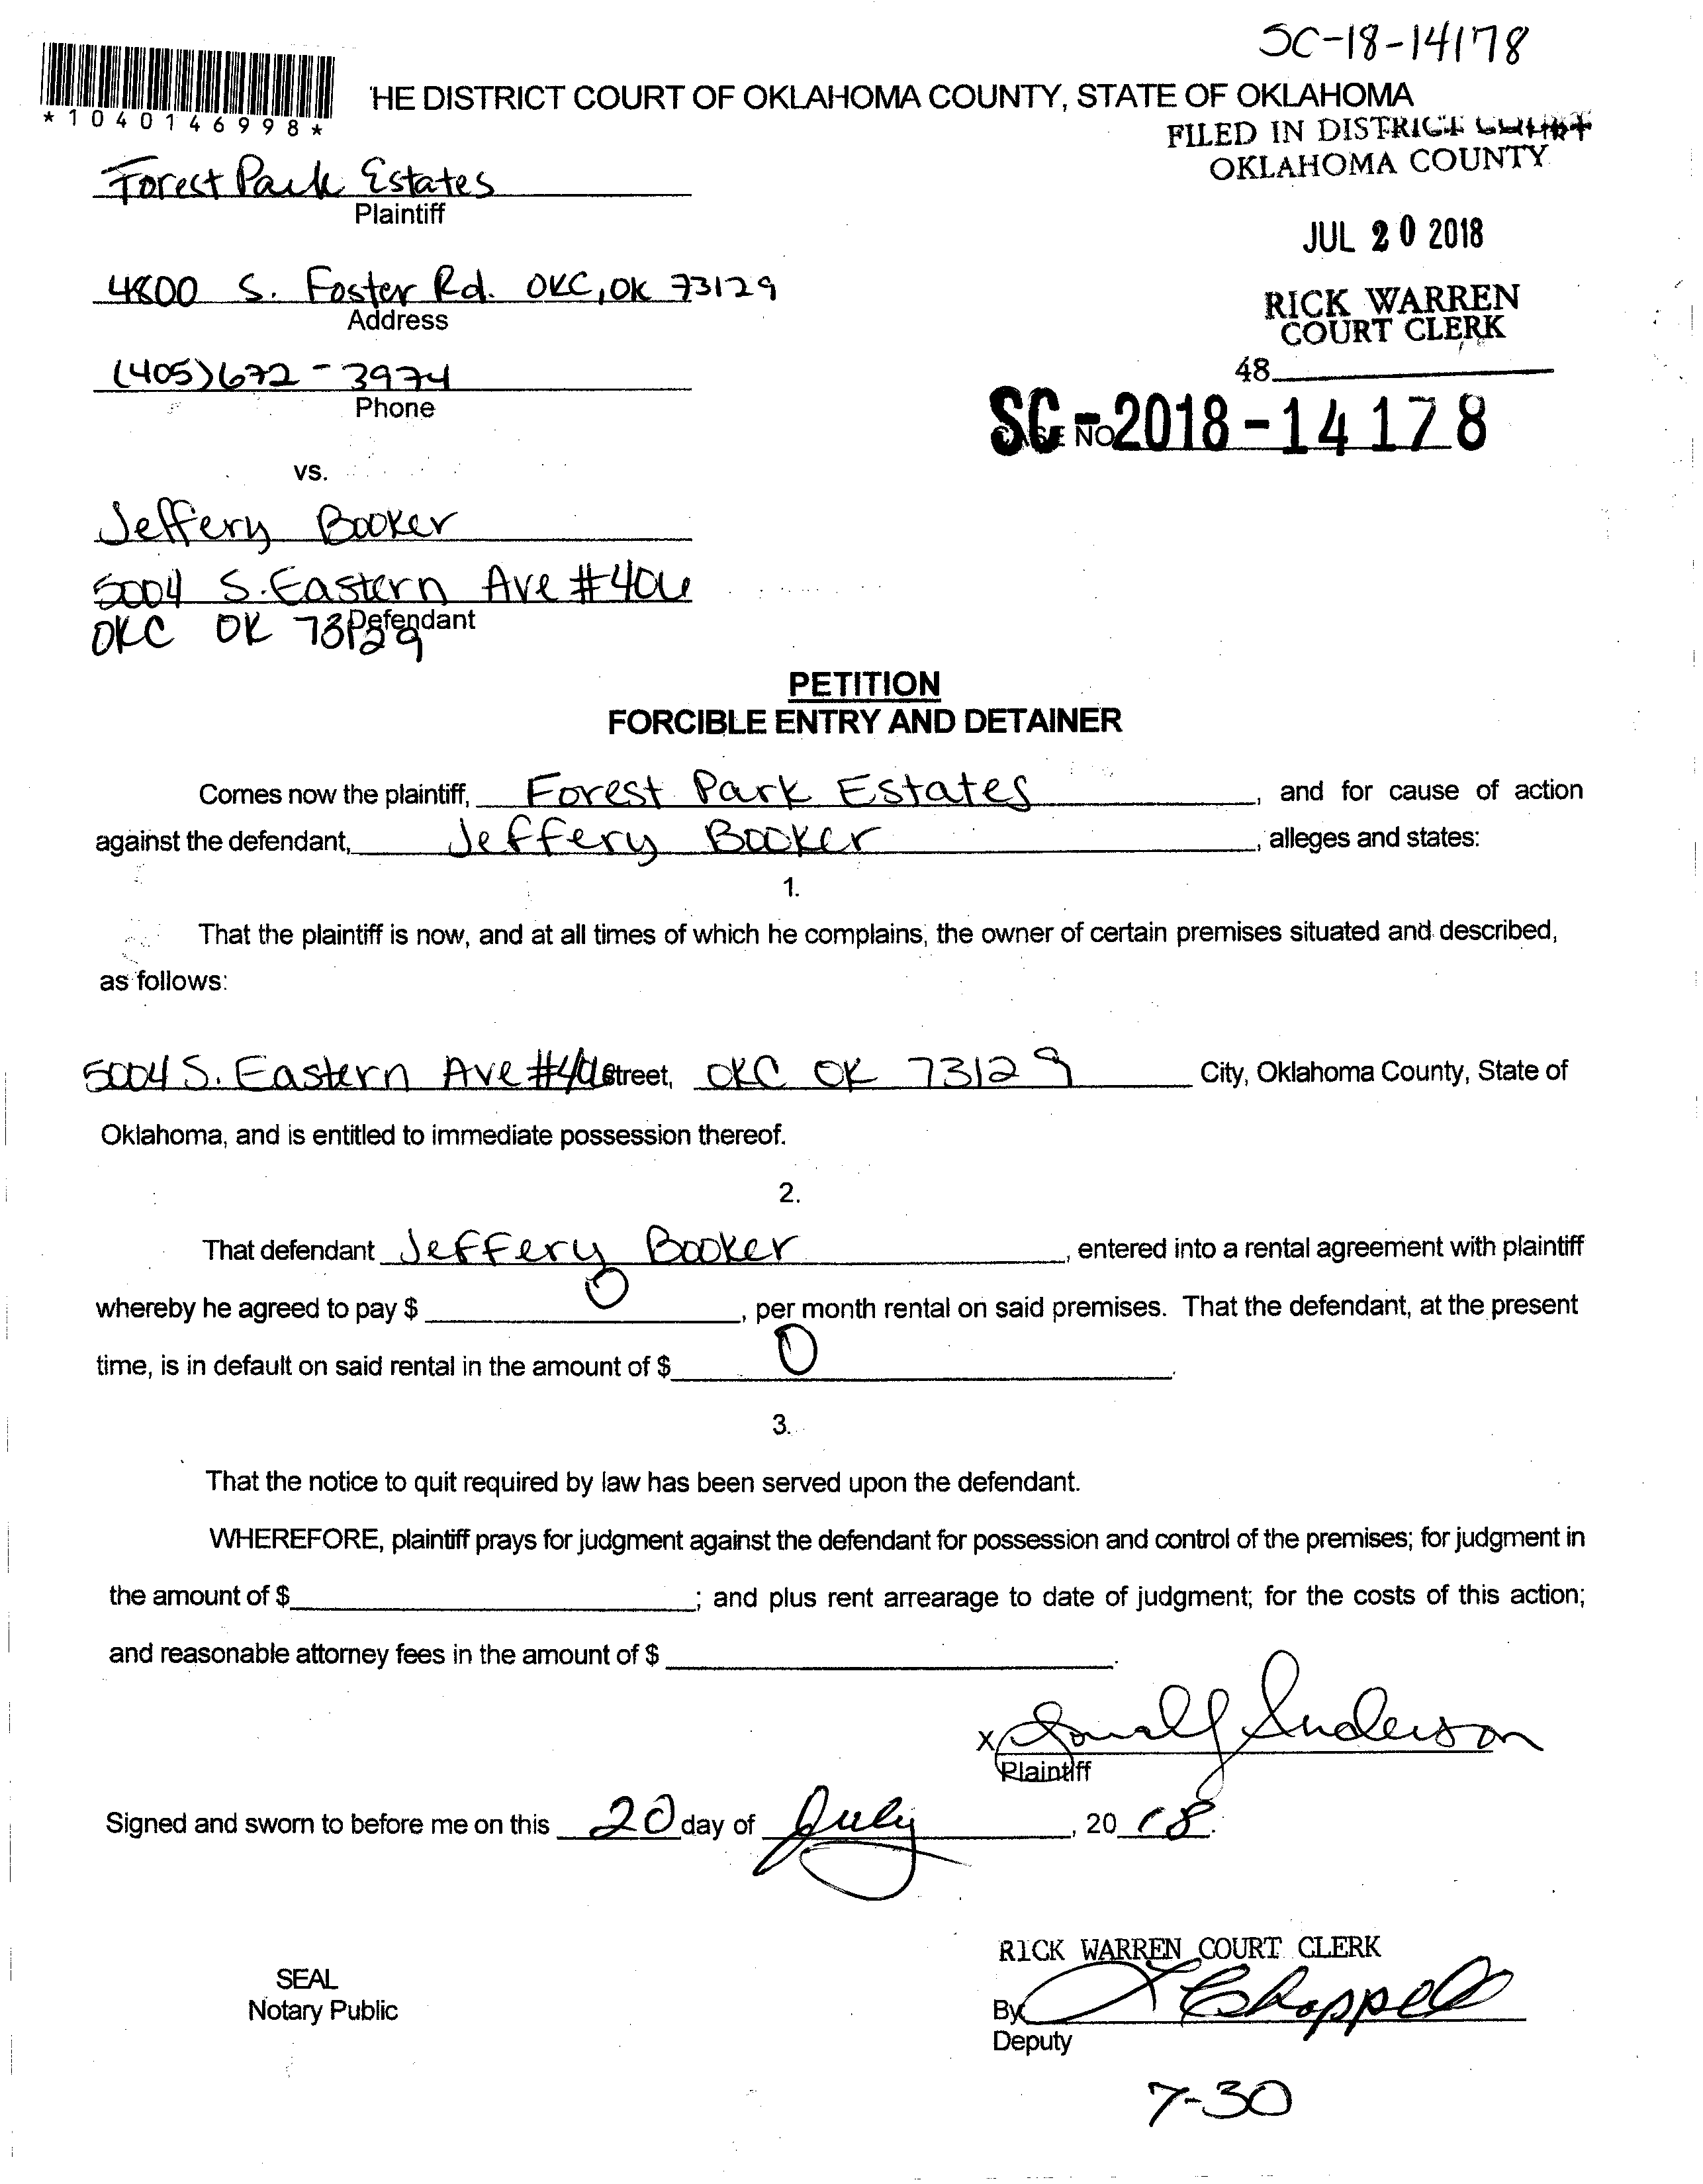 SC-18-14178
*1040146998*
HE DISTRICT COURT OF OKLAHOMA COUNTY, STATE OF OKLAHOMA
FILED IN DISTRICT COURT
OKLAHOMA COUNTY
Forest Park Estates
Plaintiff
JUL 20 2018
4800 S. Foster Rd. OKC, OK 73129
Address
RICK WARREN
COURT CLERK
(405)672-3974
Phone
48
SC-2018-14178
NO
vs.
Jeffery Booker
5004 S. Eastern Ave
Defendant
OKC OK 73129
PETITION
FORCIBLE ENTRY AND DETAINER
Comes now the plaintiff, Forest Park Estates, and for cause of action
against the defendant, Jeffery Booker, alleges and states:
1.
That the plaintiff is now, and at all times of which he complains, the owner of certain premises situated and described,
as follows:
5004 S. Eastern Ave street, OKC OK 73129 City, Oklahoma County, State of
Oklahoma, and is entitled to immediate possession thereof.
2.
That defendant Jeffery Booker, entered into a rental agreement with plaintiff
whereby he agreed to pay $ 0, per month rental on said premises. That the defendant, at the present
time, is in default on said rental in the amount of $ 0.
3.
That the notice to quit required by law has been served upon the defendant.
WHEREFORE, plaintiff prays for judgment against the defendant for possession and control of the premises; for judgment in
the amount of $; and plus rent arrearage to date of judgment; for the costs of this action;
and reasonable attorney fees in the amount of $.
x Anderson
Plaintiff
Signed and sworn to before me on this 20 day of July, 20 18.
RICK WARREN COURT CLERK
SEAL
Notary Public
By Chappell
Deputy
7-30